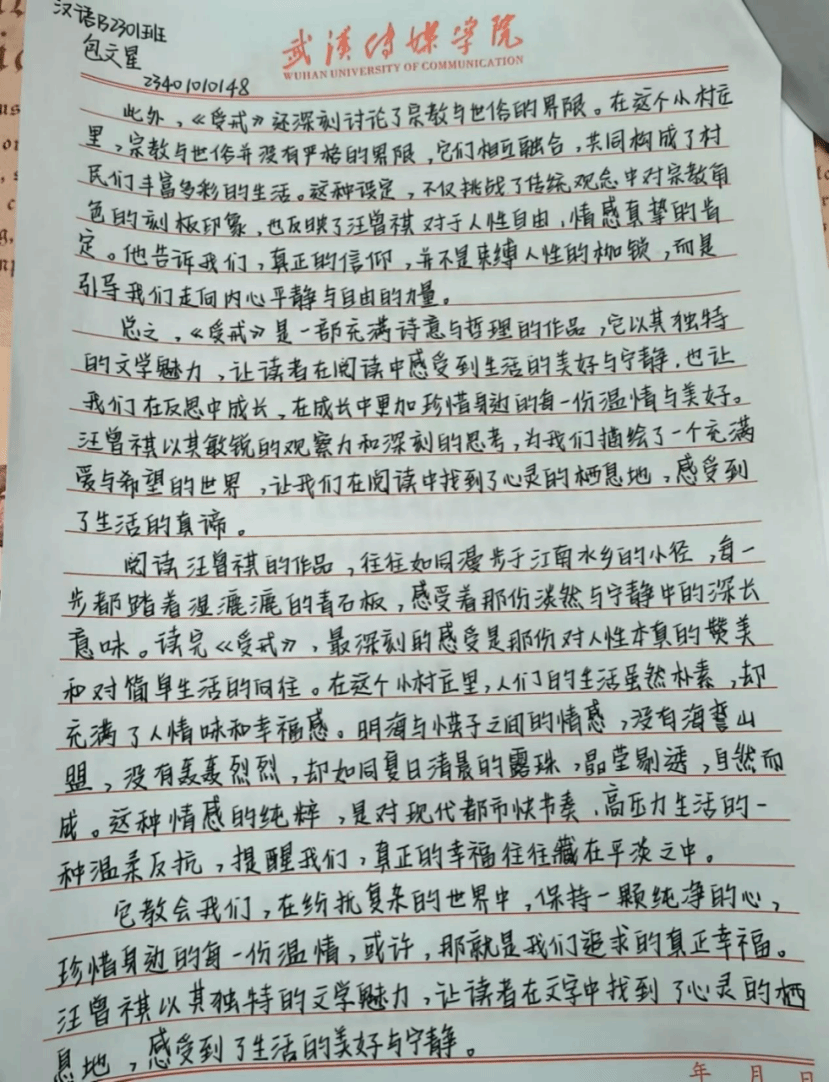 汉语B2301班
包文星
23401010148
武汉传媒学院
WUHAN UNIVERSITY OF COMMUNICATION
此外，《受戒》还深刻讨论了宗教与世俗的界限。在这个小村庄
里，宗教与世俗并没有严格的界限，它们相互融合，共同构成了村
民们丰富多彩的生活。这种设定，不仅挑战了传统观念中对宗教角
色的刻板印象，也反映了汪曾祺对于人性自由、情感真挚的肯
定。他告诉我们，真正的信仰，并不是束缚人性的枷锁，而是
引导我们走向内心平静与自由的力量。
总之，《受戒》是一部充满诗意与哲理的作品，它以其独特
的文学魅力，让读者在阅读中感受到生活的美好与宁静，也让
我们在反思中成长，在成长中更加珍惜身边的每一份温情与美好。
汪曾祺以其敏锐的观察力和深刻的思考，为我们描绘了一个充满
爱与希望的世界，让我们在阅读中找到了心灵的栖息地，感受到
了生活的真谛。
阅读汪曾祺的作品，往往如同漫步于江南水乡的小径，每一
步都踏着湿漉漉的青石板，感受着那份淡然与宁静中的深长
意味。读完《受戒》，最深刻的感受是那份对人性本真的赞美
和对简单生活的向往。在这个小村庄里，人们的生活虽然朴素，却
充满了人情味和幸福感。明海与英子之间的情感，没有海誓山
盟，没有轰轰烈烈，却如同夏日清晨的露珠，晶莹剔透，自然而
成。这种情感的纯粹，是对现代都市快节奏、高压力生活的一
种温柔反抗，提醒我们，真正的幸福往往藏在平淡之中。
它教会我们，在纷扰复杂的世界中，保持一颗纯净的心，
珍惜身边的每一份温情，或许，那就是我们追求的真正幸福。
汪曾祺以其独特的文学魅力，让读者在文字中找到了心灵的栖
息地，感受到了生活的美好与宁静。
年 月 日